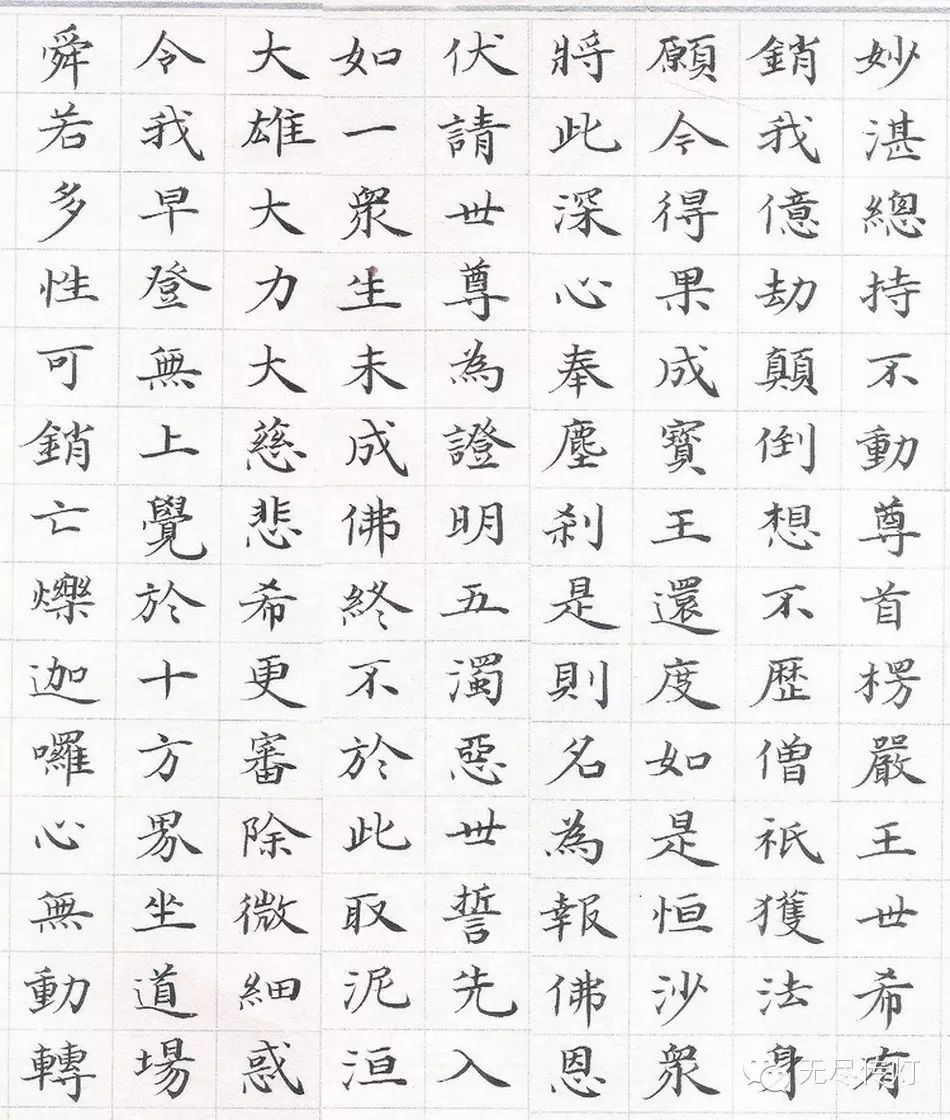 妙湛總持不動尊首楞嚴王世希有
銷我億劫顛倒想不歷僧祇獲法身
願今得果成寶王還度如是恒沙衆
將此深心奉塵剎是則名為報佛恩
伏請世尊為證明五濁惡世誓先入
如一衆生未成佛終不於此取泥洹
大雄大力大慈悲希更審除微細惑
令我早登無上覺於十方界坐道場
舜若多性可銷亡爍迦囉心無動轉
无尽传灯